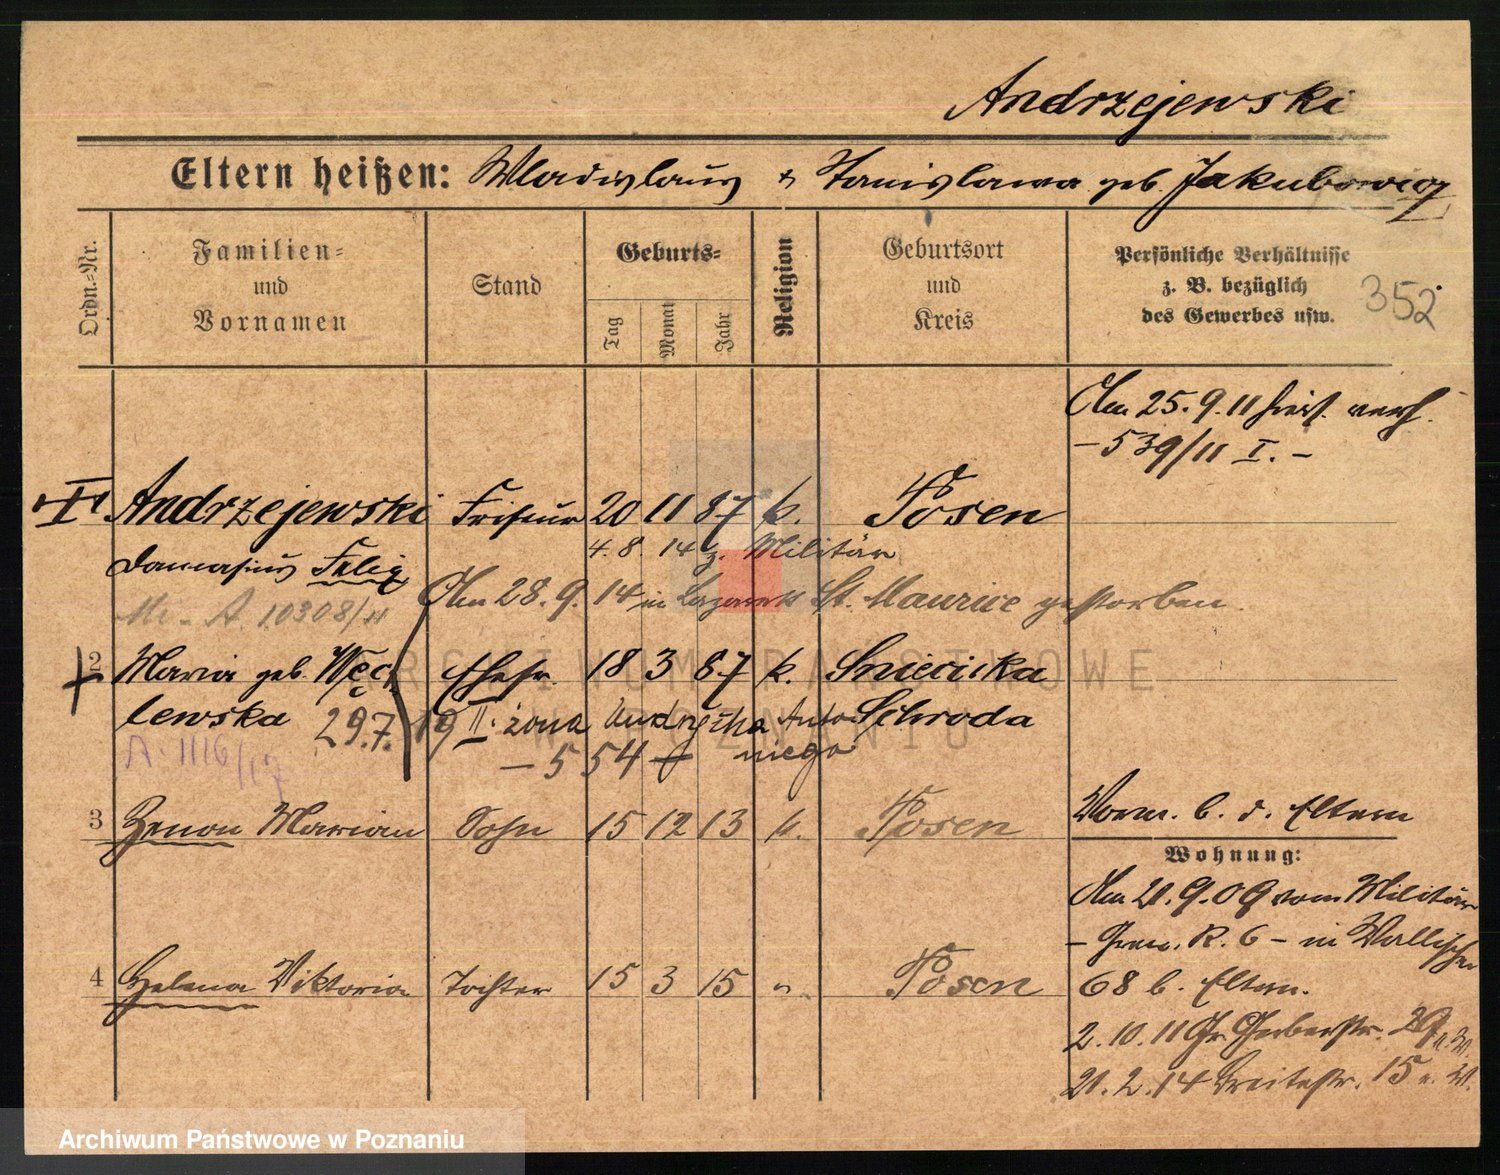 Andrzejewski
Eltern heißen: Wladislaus & Stanislawa geb. Jakubowicz
Ordn.-Nr.
Familien-
und
Vornamen
Stand
Geburts-
Tag
Monat
Jahr
Religion
Geburtsort
und
Kreis
Persönliche Verhältnisse
z. B. bezüglich
des Gewerbes usw.
352
Am 25.9.11 hier verh.
- 539/11 I. -
Andrzejewski Friseur 20 11 87 k. Posen
Damasius Felix
4. 8. 14 z. Militär
Am 28. 9. 14 in Lazarett St. Maurice gestorben.
A. 10308/11
2 Maria geb. Węc Ehefr. 18 3 87 k. Sniecicka
lewska Schroda
29.7.19 II. żona Andrzeja Anto
- 554 niego
A. 1116/17
3 Zenon Marian Sohn 15 12 13 k. Posen
Vorm. b. d. Eltern
Wohnung:
Am 21.9.09 vom Militär
- Gren. R. 6 - in Wallischei
68 b. Eltern.
4 Helena Viktoria Tochter 15 3 15 " Posen
2.10.11 Gr. Gerberstr. 29 a. W.
21.2.14 Breitestr. 15 a. W.
ARCHIWUM PAŃSTWOWE
W POZNANIU
Archiwum Państwowe w Poznaniu